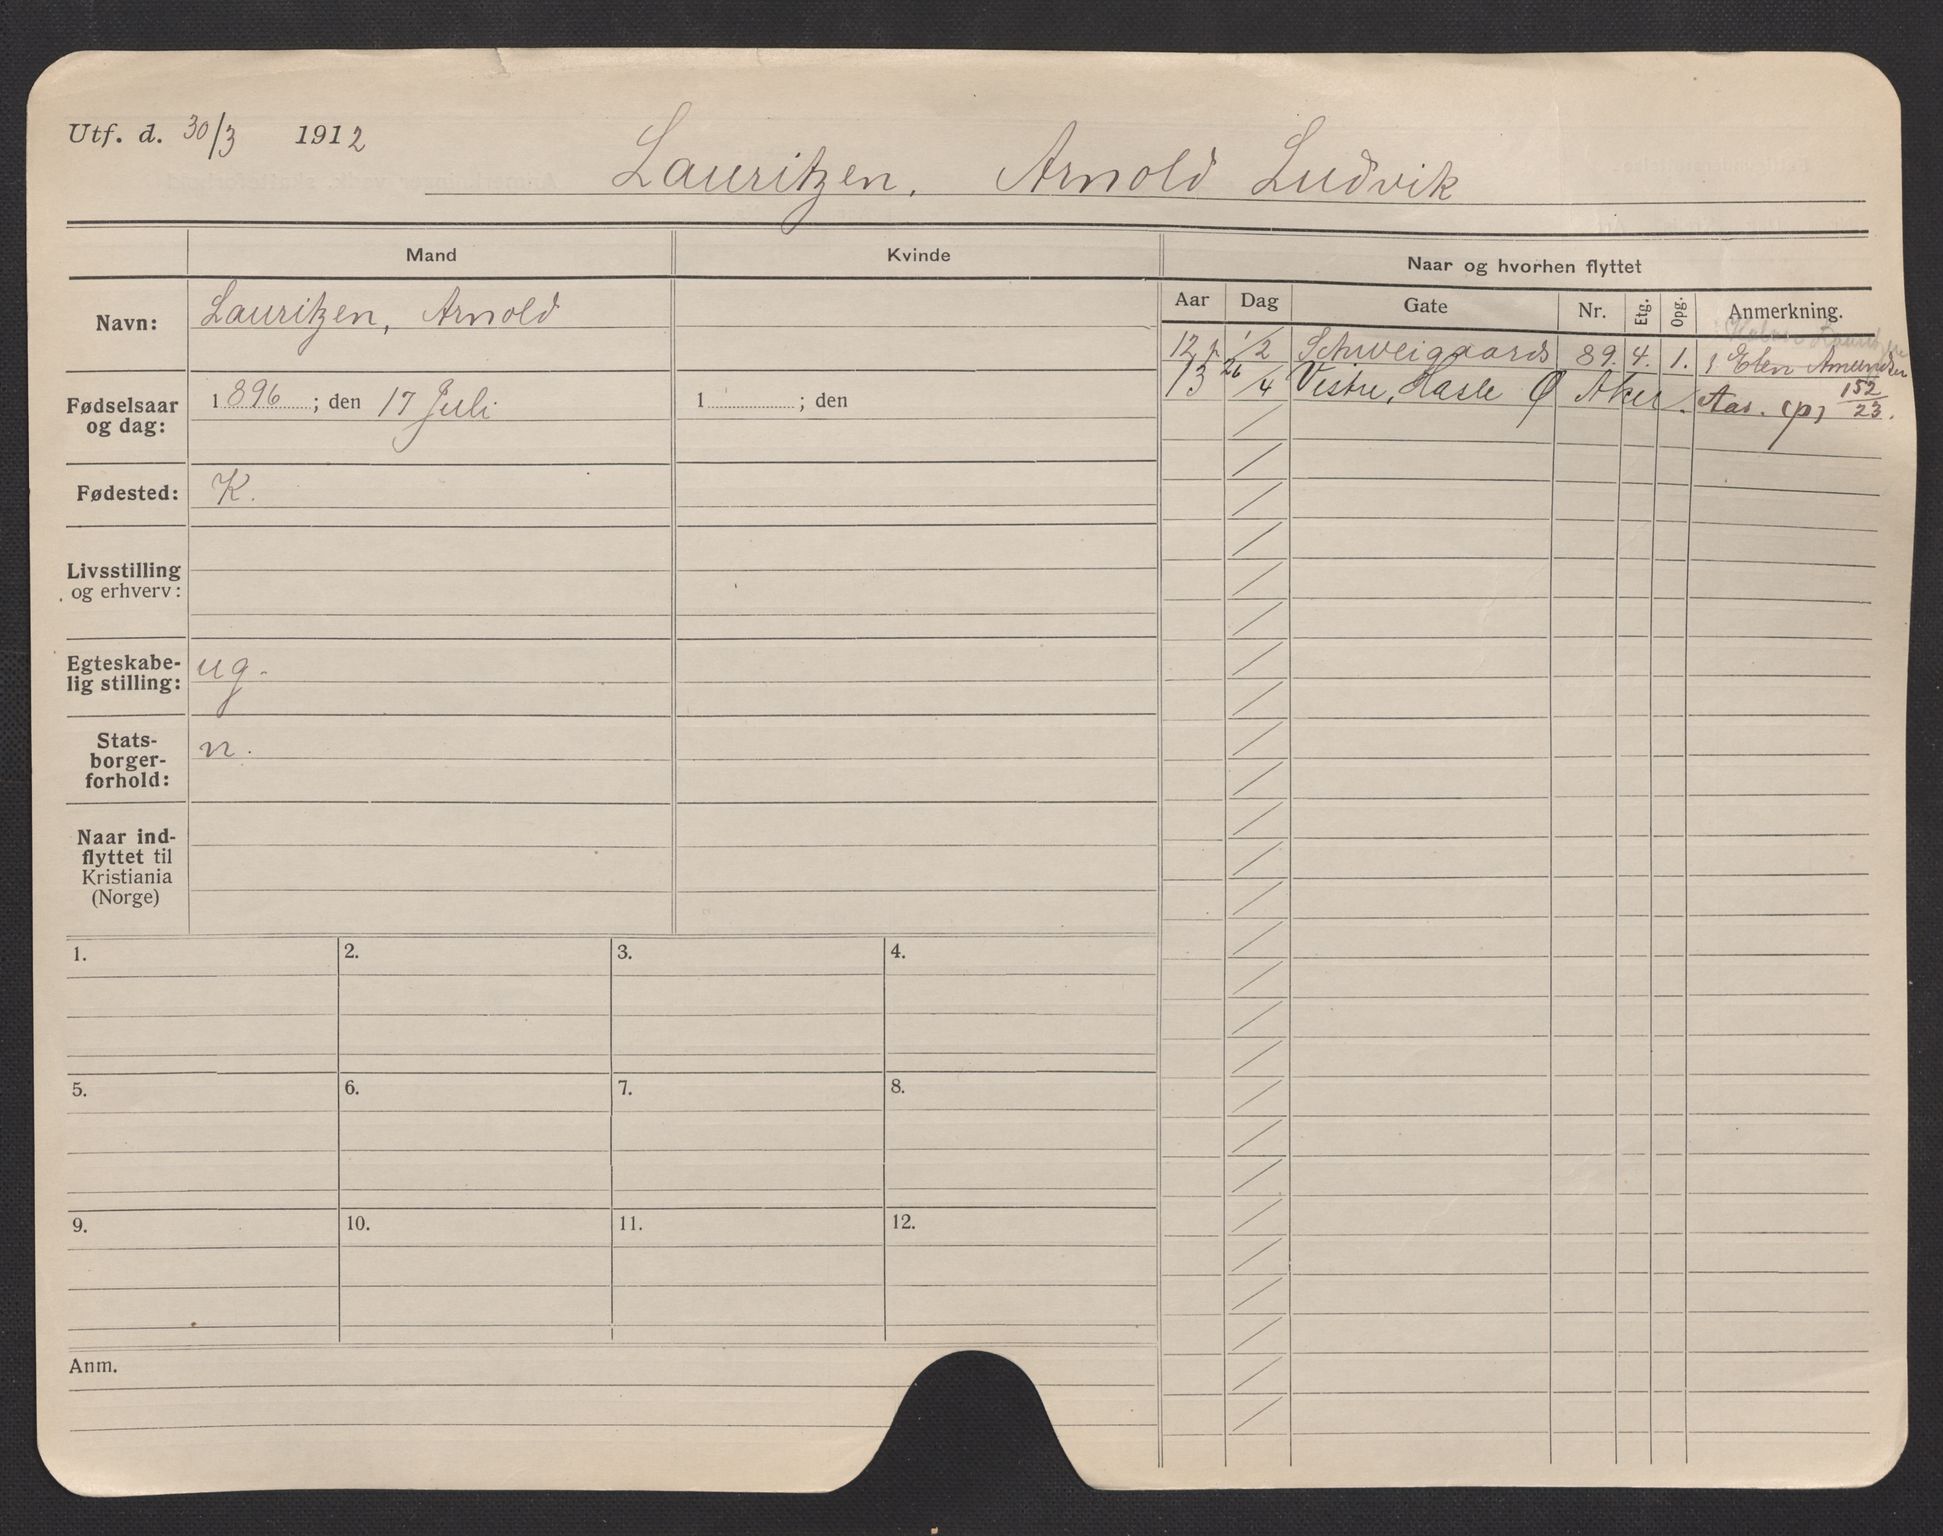 Utf. d. 30/3 1912
Lauritzen, Arnold Ludvik
Mand
Kvinde
Naar og hvorhen flyttet
Aar Dag Gate Nr. Etg. Opg. Anmerkning.
Navn: Lauritzen, Arnold
12 1/2 Schweigaards 89. 4. 1. Elen Amundsen
13 26/4 Vestre Hasle Ø Aker. Aas. (p) 152/23.
Fødselsaar og dag: 1896; den 17 Juli
1 ; den
Fødested: K.
Livsstilling
og erhverv:
Egteskabe-
lig stilling: ug.
Stats-
borger-
forhold: n.
Naar ind-
flyttet til
Kristiania
(Norge)
1. 2. 3. 4.
5. 6. 7. 8.
9. 10. 11. 12.
Anm.